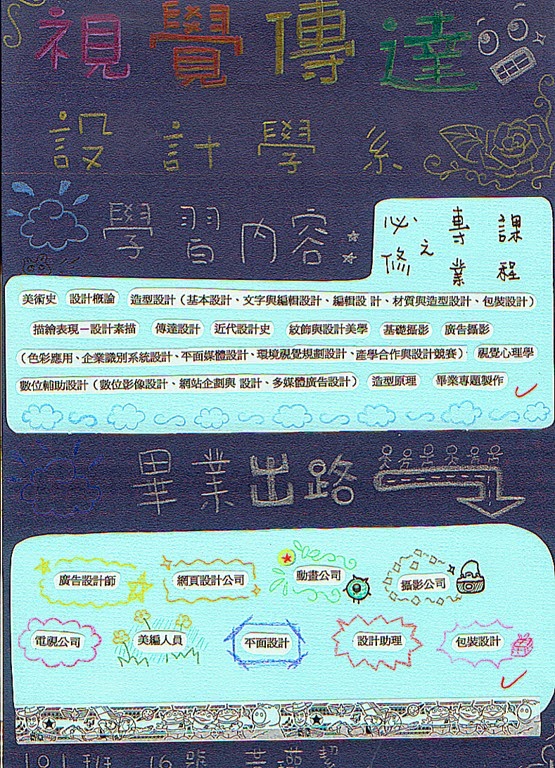 視覺傳達
設計學系
學習內容
必修之專業課程
美術史 設計概論 造型設計(基本設計、文字與編輯設計、編輯設 計、材質與造型設計、包裝設計)
描繪表現－設計素描 傳達設計 近代設計史 紋飾與設計美學 基礎攝影 廣告攝影
(色彩應用、企業識別系統設計、平面媒體設計、環境視覺規劃設計、產學合作與設計競賽) 視覺心理學
數位輔助設計(數位影像設計、網站企劃與 設計、多媒體廣告設計) 造型原理 畢業專題製作
畢業出路
廣告設計師 網頁設計公司 動畫公司 攝影公司
電視公司 美編人員 平面設計 設計助理 包裝設計
101班 16號